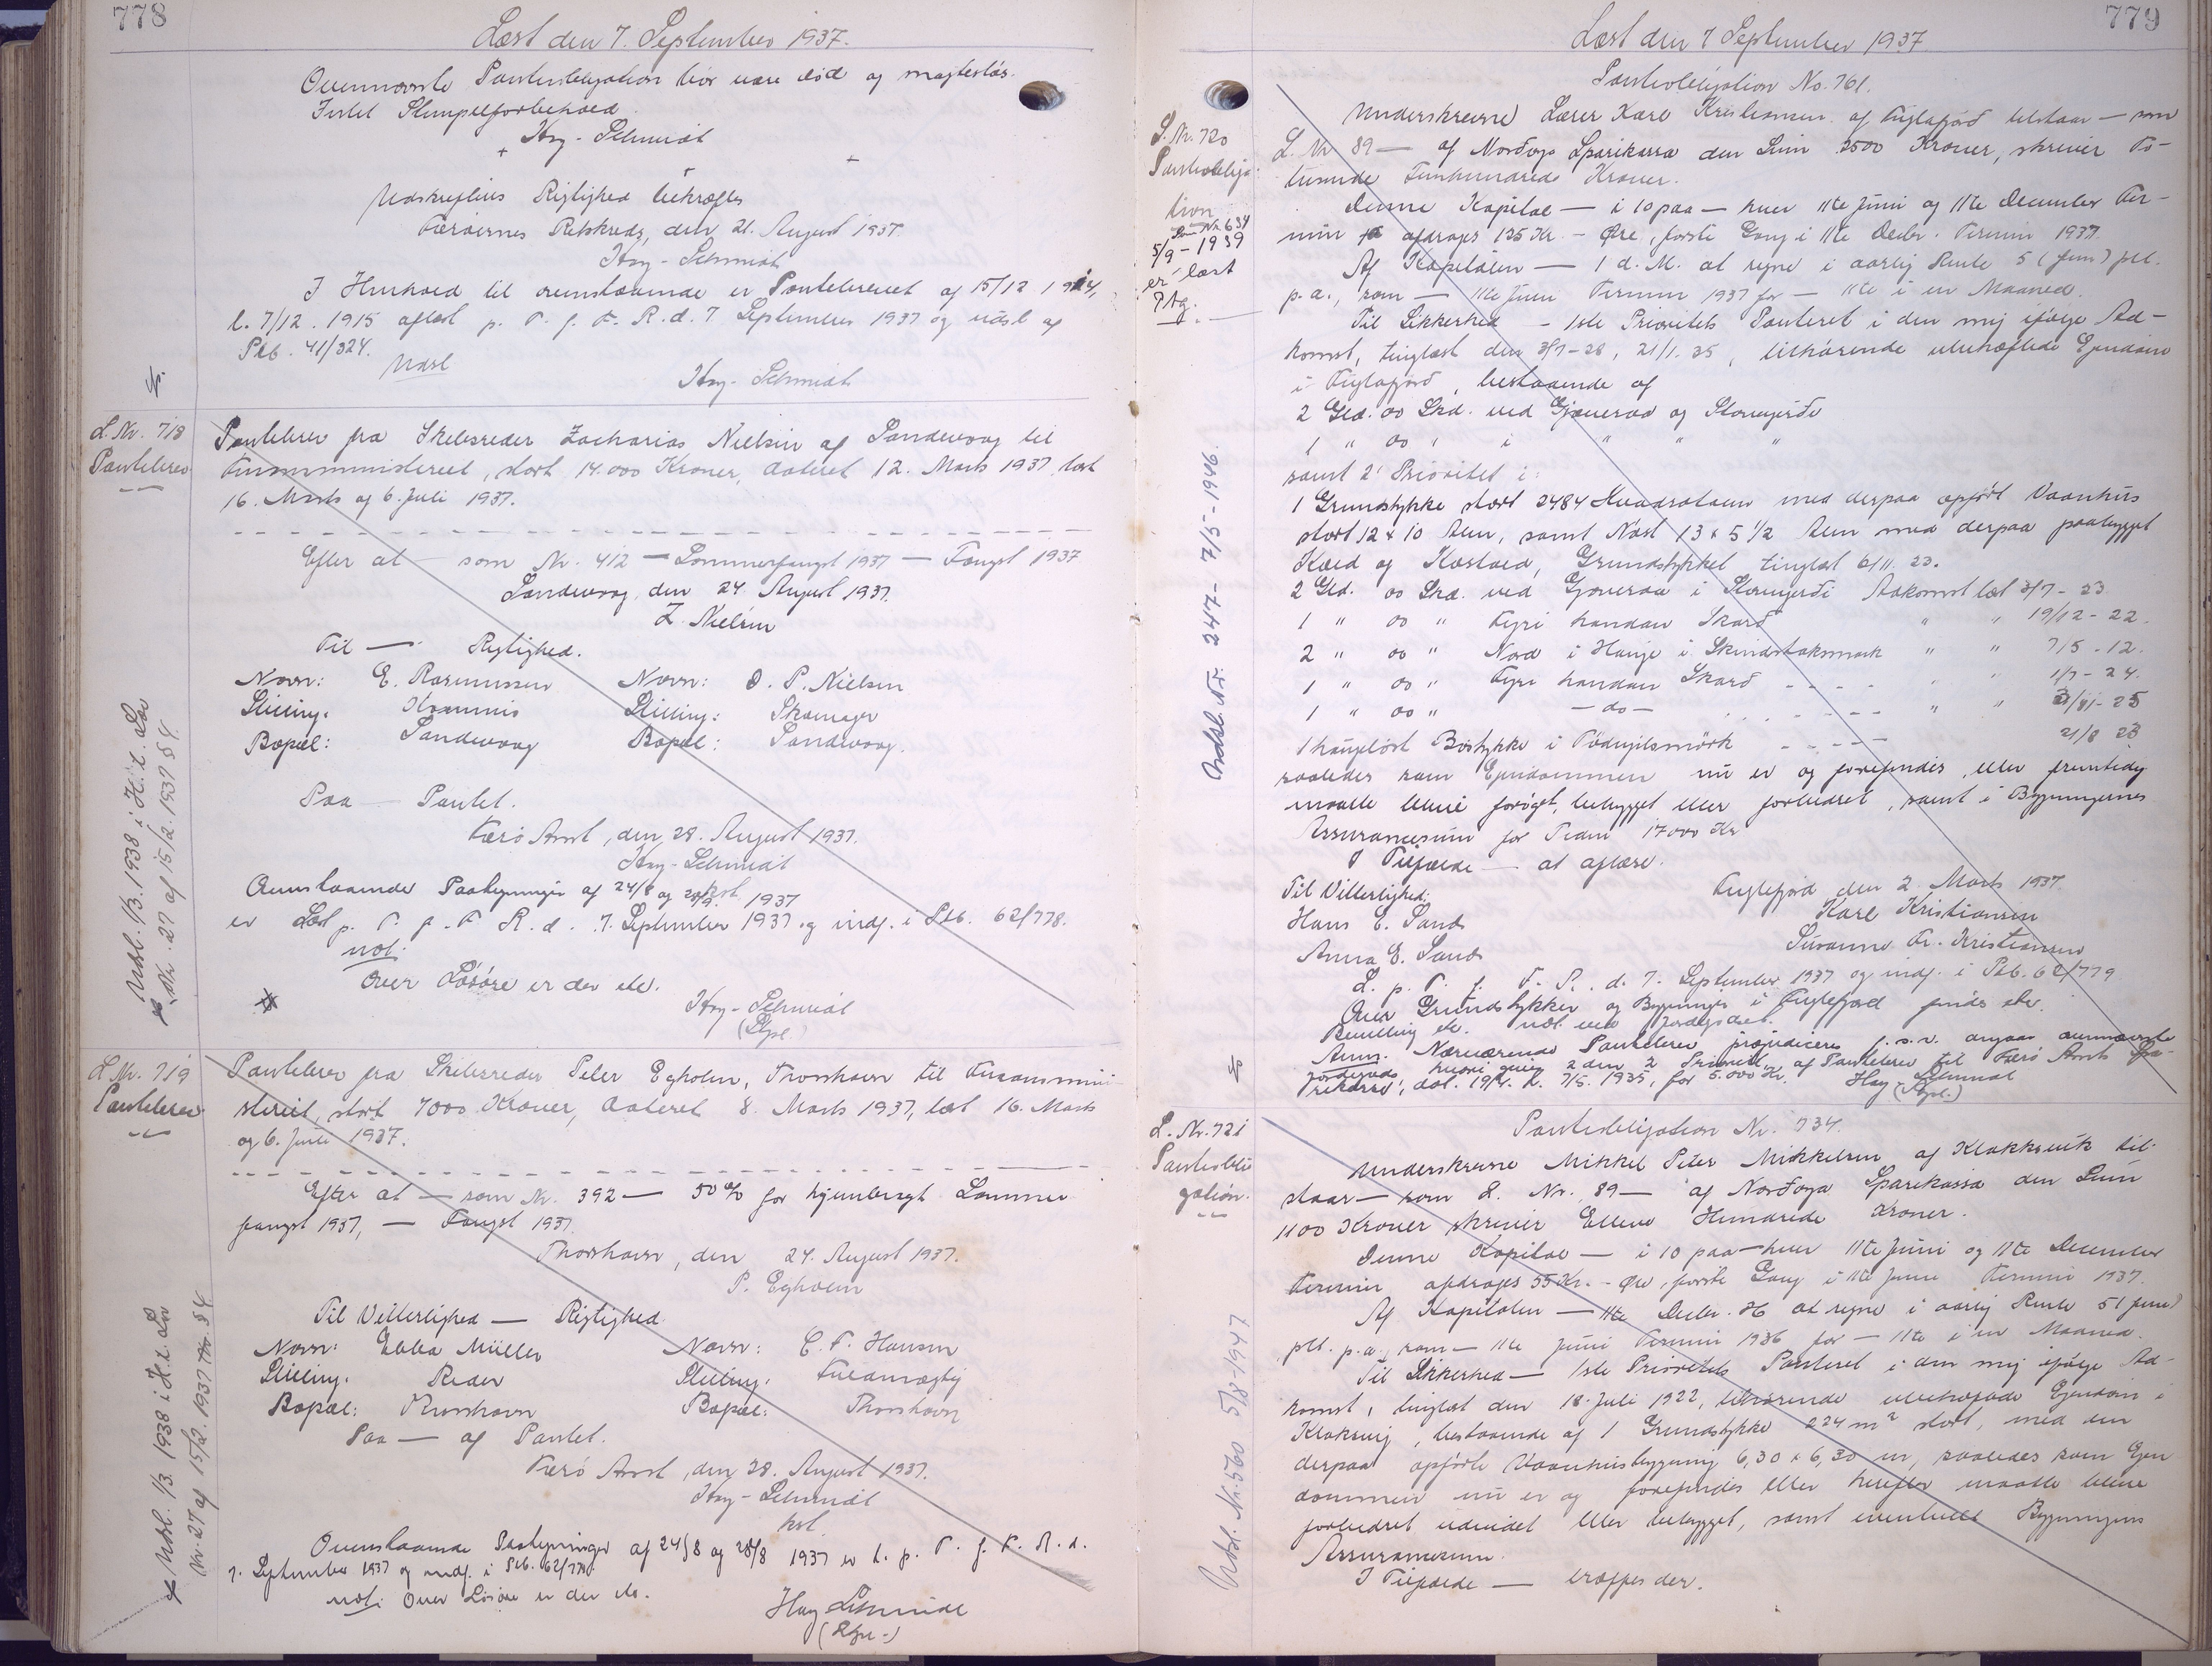 778
Læst den 7. September 1937.
Ovennævnte Pantobligation bør være død og magtesløs.
Intet Stempelforbehold.
Hay-Schmidt
Udskriftens Rigtighed bekræftes
Færøernes Retskreds, den 21. August 1937.
Hay-Schmidt
I Henhold til ovenstaaende er Pantebrevet af 15/12 1914,
l. 7/12. 1915 aflæst p. T. f. F. R. d. 7. September 1937 og udsl. af
Ptb. 41/324.
Udsl
Hay-Schmidt
L. Nr. 718
Pantebrev
Pantebrev fra Skibsreder Zacharias Nielsen af Sandevaag til
Finansministeriet, stort 14.000 Kroner, dateret 12. Marts 1937, læst
16. Marts og 6. Juli 1937.
Efter at — som Nr. 412 — Sommerfangst 1937 — Fangst 1937
Sandevaag, den 24. August 1937.
Z. Nielsen
Til — Rigtighed.
Navn: E. Rasmussen Navn: O. P. Nielsen
Stilling: Kommis Stilling: Skomager
Bopæl: Sandevaag Bopæl: Sandevaag.
Paa — Pantet.
Færø Amt, den 28. August 1937.
Hay-Schmidt
kst.
Ovenstaaende Paategninger af 24/8 og 28/8 1937
er Læst p. T. f. F. R. d. 7. September 1937 og indf. i Ptb. 62/778.
not.
Over Løsøre er der etc.
Hay-Schmidt
Udsl. 1/3. 1938 i H. t. Lov
Nr. 27 af 15/2. 1937 § 4.
L. Nr. 719
Pantebrev
Pantebrev fra Skibsreder Peter Egholm, Thorshavn til Finansmini-
steriet, stort 7000 Kroner, dateret 8. Marts 1937, læst 16. Marts
og 6. Juli 1937.
Efter at — som Nr. 392 — 50% for hjembragt Sommer
fangst 1937, — Fangst 1937.
Thorshavn, den 24. August 1937.
P. Egholm
Til Vitterlighed — Rigtighed
Navn: Ebba Müller Navn: C. F. Hansen
Stilling: Reder Stilling: Fuldmægtig
Bopæl: Thorshavn Bopæl: Thorshavn
Paa — af Pantet.
Færø Amt, den 28. August 1937.
Hay-Schmidt
kst.
Ovenstaaende Paategninger af 24/8 og 28/8 1937 er l. p. T. f. F. R. d.
7. September 1937 og indf. i Ptb. 62/778.
not. Over Løsøre er der etc.
Hay Schmidt
Udsl. 1/3. 1938 i H. t. Lov
Nr. 27 af 15/2. 1937 § 4
779
Læst den 7 September 1937
Pantobligation No. 761.
L. Nr. 720
Pantobliga-
tion
Nr. 634
5/9-1939
er læst
Underskrevne Lærer Karl Kristiansen af Fuglefjord tilstaar — som
L. Nr 89 — af Norðoya Sparikassa den Sum 2500 Kroner, skriver To-
tusinde Femhundrede Kroner.
Denne Kapital — i 10 paa — hver 11te Juni og 11te December Ter-
min afdrages 125 Kr. – Øre, første Gang i 11te Decbr. Termin 1937
Af Kapitalen — 1 d. M. at regne i aarlig Rente 5 (fem) pct.
p. a., som — 11te Juni Termin 1937 for — 11te i en Maaned.
Til Sikkerhed – 1ste Prioritets Panteret i den mig ifølge Ad-
komst, tinglæst den 3/7-28, 21/1.35, tilhørende ubehæftede Ejendom
i Fuglefjord, bestaaende af
2 Gld. 00 Skd. ved Gjoveraa og Storugerði
1 " 00 " i " " "
samt 2' Prioritet i:
1 Grundstykke stort 2484 Kvadratalen med derpaa opført Vaanhus
stort 12 x 10 Alen, samt Nøst 13 x 5 1/2 Alen med derpaa paabygget
Kæld og Kostald, Grundstykket tinglæst 6/11. 23.
2 Gld. 00 Skd. ved Gjoveraa i Storugerði Adkomst læst 3/7 - 23
1 " 00 " Fyri handan Skarð " " 19/12 - 22.
2 " 00 " Nord i Hauge i Skindstaksmark " " 7/5 - 12.
1 " 00 " Fyri handan Skarð " " 1/7 - 24.
1 " 00 " — do — " " 3/11 - 25
21/8 23
saaledes som Ejendommen nu er og forefindes, eller fremtidig
maatte blive forøget, bebygget eller forbedret, samt i Bygningernes
Assurancesum for Tiden 17000 Kr
I Tilfælde — at aflæse.
Til Vitterlighed: Fuglefjord den 2. Marts 1937.
Hans E. Sands Karl Kristiansen
Anna E. Sands Susanne Fr. Kristiansen
L. p. T. f. F. R. d. 7. September 1937 og indf. i Ptb. 62/779
Over Grundstykker og Bygninger i Fuglefjord findes etc.
Bevilling etc.
Anm. Nærværende Pantebrev præjudiceres f. s. v. angaar ovennævnte
af Pantebrev til Færø Amts Spa-
rikassa, dat. 19/4. l. 7/5. 1935, for 5.000 Kr. Hay Schmidt
Udsl. Nr. 247 - 7/5-1946.
L. Nr. 721
Pantobli-
gation.
Pantobligation Nr. 734.
Underskrevne Mikkel Peter Mikkelsen af Klakksvik til-
staar — som L. Nr. 89 — af Norðoya Sparikassa den Sum
1100 Kroner skriver Elleve Hundrede Kroner.
Denne Kapital — i 10 paa — hver 11te Juni og 11te December
Termin afdrages 55 Kr. - Øre, første Gang i 11te Juni Termin 1937.
Af Kapitalen — 11te Decbr. at regne i aarlig Rente 5 (fem)
pct. p. a., som — 11te Juni Termin 1936 for — 11te i en Maaned.
Til Sikkerhed — 1ste Prioritets Panteret i den mig ifølge Ad-
komst, tinglæst den 18. Juli 1922, tilhørende ubehæftede Ejendom i
Klaksvig, bestaaende af 1 Grundstykke 224 m² stort, med den
derpaa opførte Vaanhusbygning 6,30 x 6,30 m, saaledes som Ejen
dommen nu er og forefindes eller herefter maatte blive
forbedret, udvidet eller bebygget, samt eventuelt Bygningens
Assurancesum.
I Tilfælde — træffes der.
Udsl. Nr. 560 5/8-1947